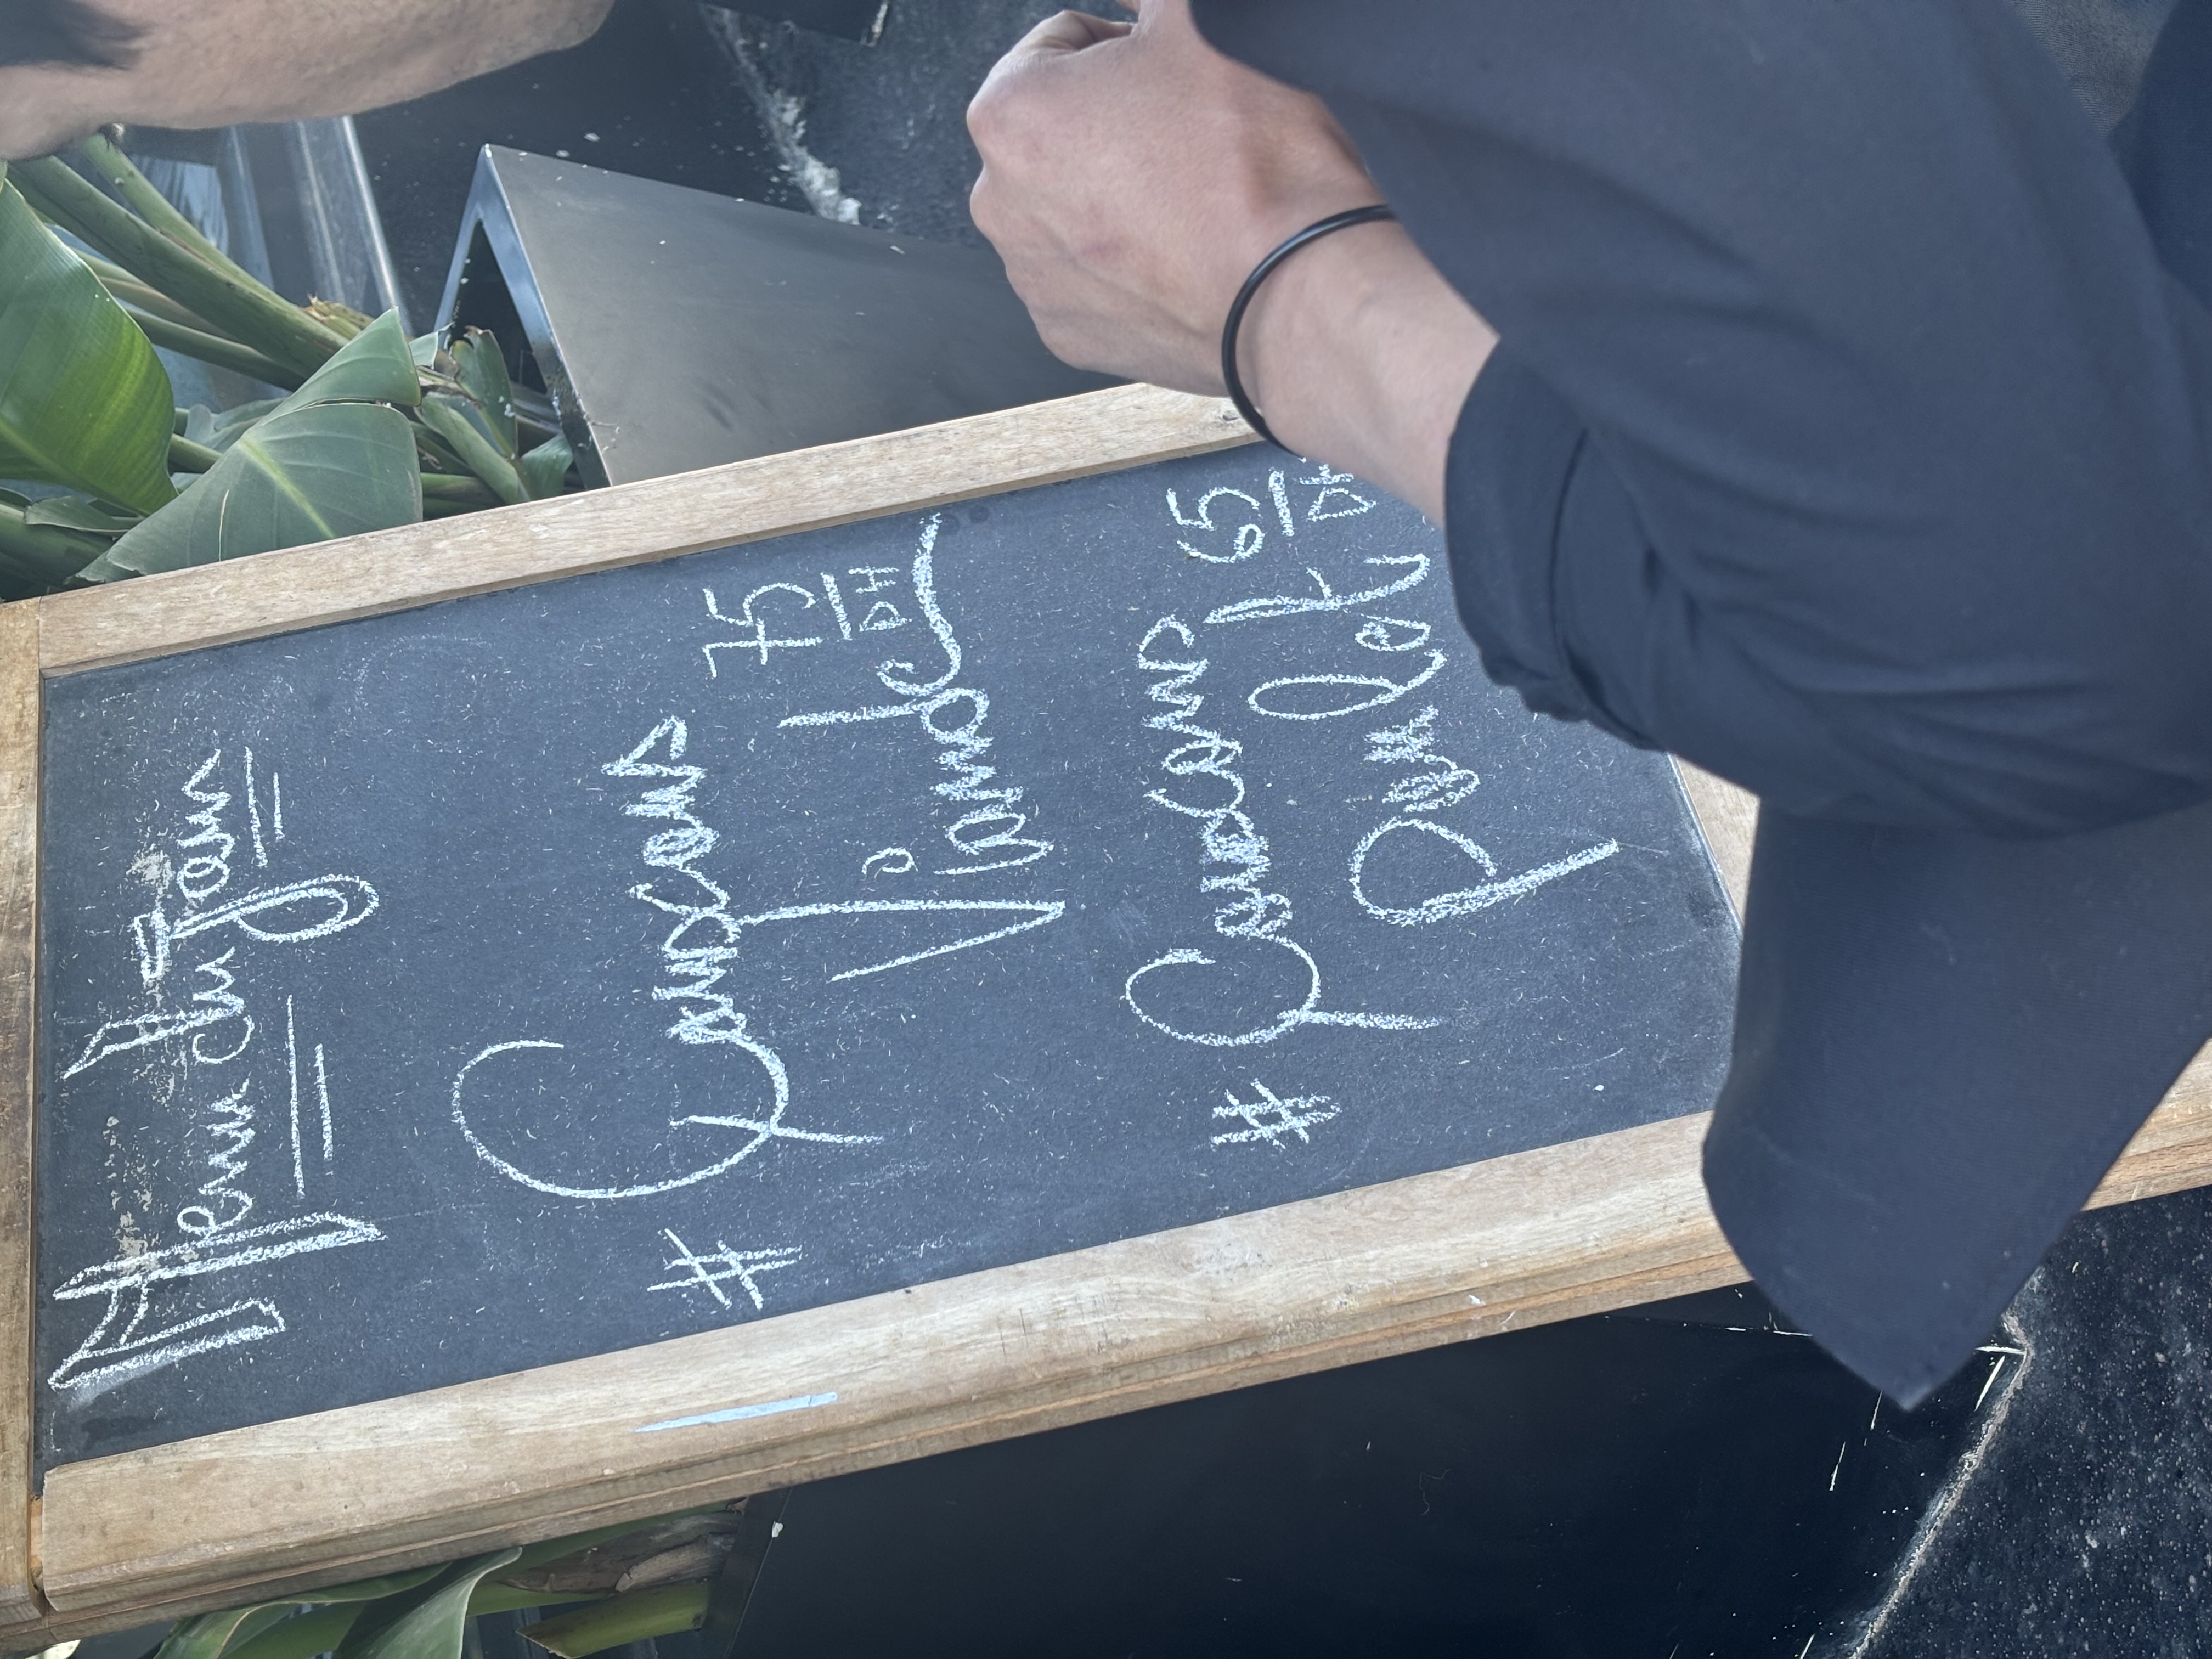 Menu du Jour
# Couscous 75
Viande DH
# Couscous 65
Poulet DH